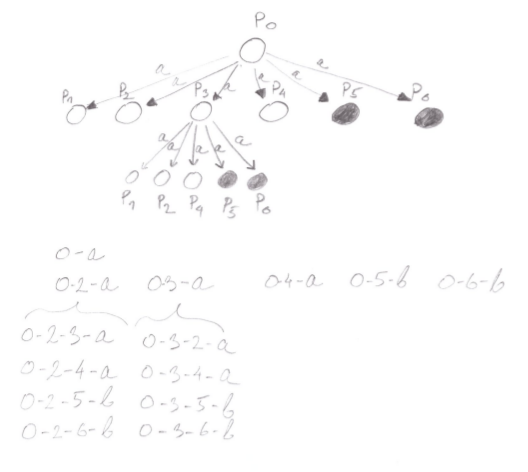 P0
a a a a a a
P1 P2 P3 P4 P5 P6
a a a a a
P1 P2 P4 P5 P6
0-a
0-2-a 0-3-a 0-4-a 0-5-b 0-6-b
0-2-3-a 0-3-2-a
0-2-4-a 0-3-4-a
0-2-5-b 0-3-5-b
0-2-6-b 0-3-6-b